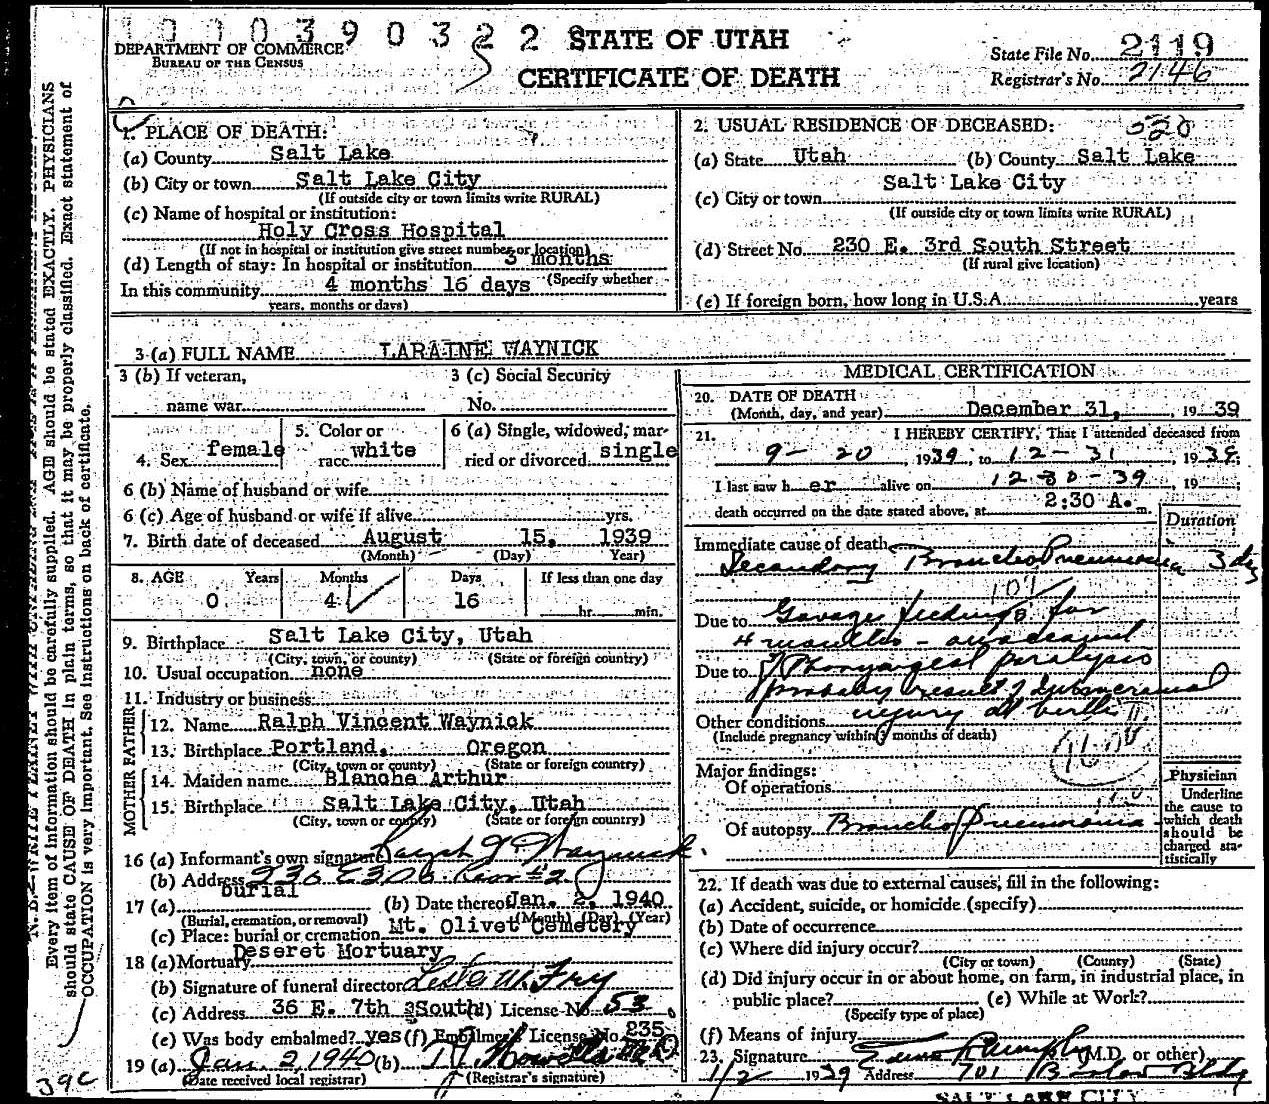 1 0 0 0 3 9 0 3 2 2
STATE OF UTAH
CERTIFICATE OF DEATH
DEPARTMENT OF COMMERCE
BUREAU OF THE CENSUS
State File No. 2119
Registrar's No. 2146
1. PLACE OF DEATH:
(a) County Salt Lake
(b) City or town Salt Lake City
(If outside city or town limits write RURAL)
(c) Name of hospital or institution:
Holy Cross Hospital
(If not in hospital or institution give street number or location)
(d) Length of stay: In hospital or institution 3 months
(Specify whether
In this community 4 months 16 days
years, months or days)
2. USUAL RESIDENCE OF DECEASED:
(a) State Utah (b) County Salt Lake
Salt Lake City
(c) City or town
(If outside city or town limits write RURAL)
(d) Street No. 230 E. 3rd South Street
(If rural give location)
(e) If foreign born, how long in U.S.A. years
3 (a) FULL NAME LARAINE WAYNICK
3 (b) If veteran,
name war
3 (c) Social Security
No.
4. Sex female
5. Color or
race white
6 (a) Single, widowed, mar-
ried or divorced single
6 (b) Name of husband or wife
6 (c) Age of husband or wife if alive yrs.
7. Birth date of deceased August 15, 1939
(Month) (Day) Year)
8. AGE Years Months Days If less than one day
0 4 16 hr. min.
9. Birthplace Salt Lake City, Utah
(City, town, or county) (State or foreign country)
10. Usual occupation none
11. Industry or business
FATHER
12. Name Ralph Vincent Waynick
13. Birthplace Portland, Oregon
(City, town or county) (State or foreign country)
MOTHER
14. Maiden name Blanche Arthur
15. Birthplace Salt Lake City, Utah
(City, town or county) (State or foreign country)
16 (a) Informant's own signature Ralph V Waynick
(b) Address 230 E 3 So.
17 (a) burial (b) Date thereof Jan. 2, 1940
(Burial, cremation, or removal) (Month) (Day) (Year)
(c) Place: burial or cremation Mt. Olivet Cemetery
18 (a) Mortuary Deseret Mortuary
(b) Signature of funeral director
(c) Address 36 E. 7th South (d) License No. 53
(e) Was body embalmed? yes (f) Embalmer's License No. 235
19 (a) Jan. 2, 1940 (b)
(Date received local registrar) (Registrar's signature)
MEDICAL CERTIFICATION
20. DATE OF DEATH
(Month, day, and year) December 31, 1939
21. I HEREBY CERTIFY, That I attended deceased from
9-20, 1939, to 12-31, 1939;
I last saw her alive on 12-30-39, 19
death occurred on the date stated above, at 2:30 A. m.
Duration
Immediate cause of death
Secondary Broncho Pneumonia 3 dys
107
Due to Gavage feedings for
4 months
Due to Pharyngeal paralysis
probably result of
injury at birth
Other conditions
(Include pregnancy within 3 months of death)
Major findings:
Of operations
Of autopsy Broncho Pneumonia
Physician
Underline
the cause to
which death
should be
charged sta-
tistically
22. If death was due to external causes, fill in the following:
(a) Accident, suicide, or homicide (specify)
(b) Date of occurrence
(c) Where did injury occur?
(City or town) (County) (State)
(d) Did injury occur in or about home, on farm, in industrial place, in
public place? (e) While at Work?
(Specify type of place)
(f) Means of injury
23. Signature (M.D. or other)
1/2 1939 Address 701 Bldg
SALT LAKE CITY
39c
Every item of information should be carefully supplied. AGE should be stated EXACTLY. PHYSICIANS
should state CAUSE OF DEATH in plain terms, so that it may be properly classified. Exact statement of
OCCUPATION is very important. See instructions on back of certificate.